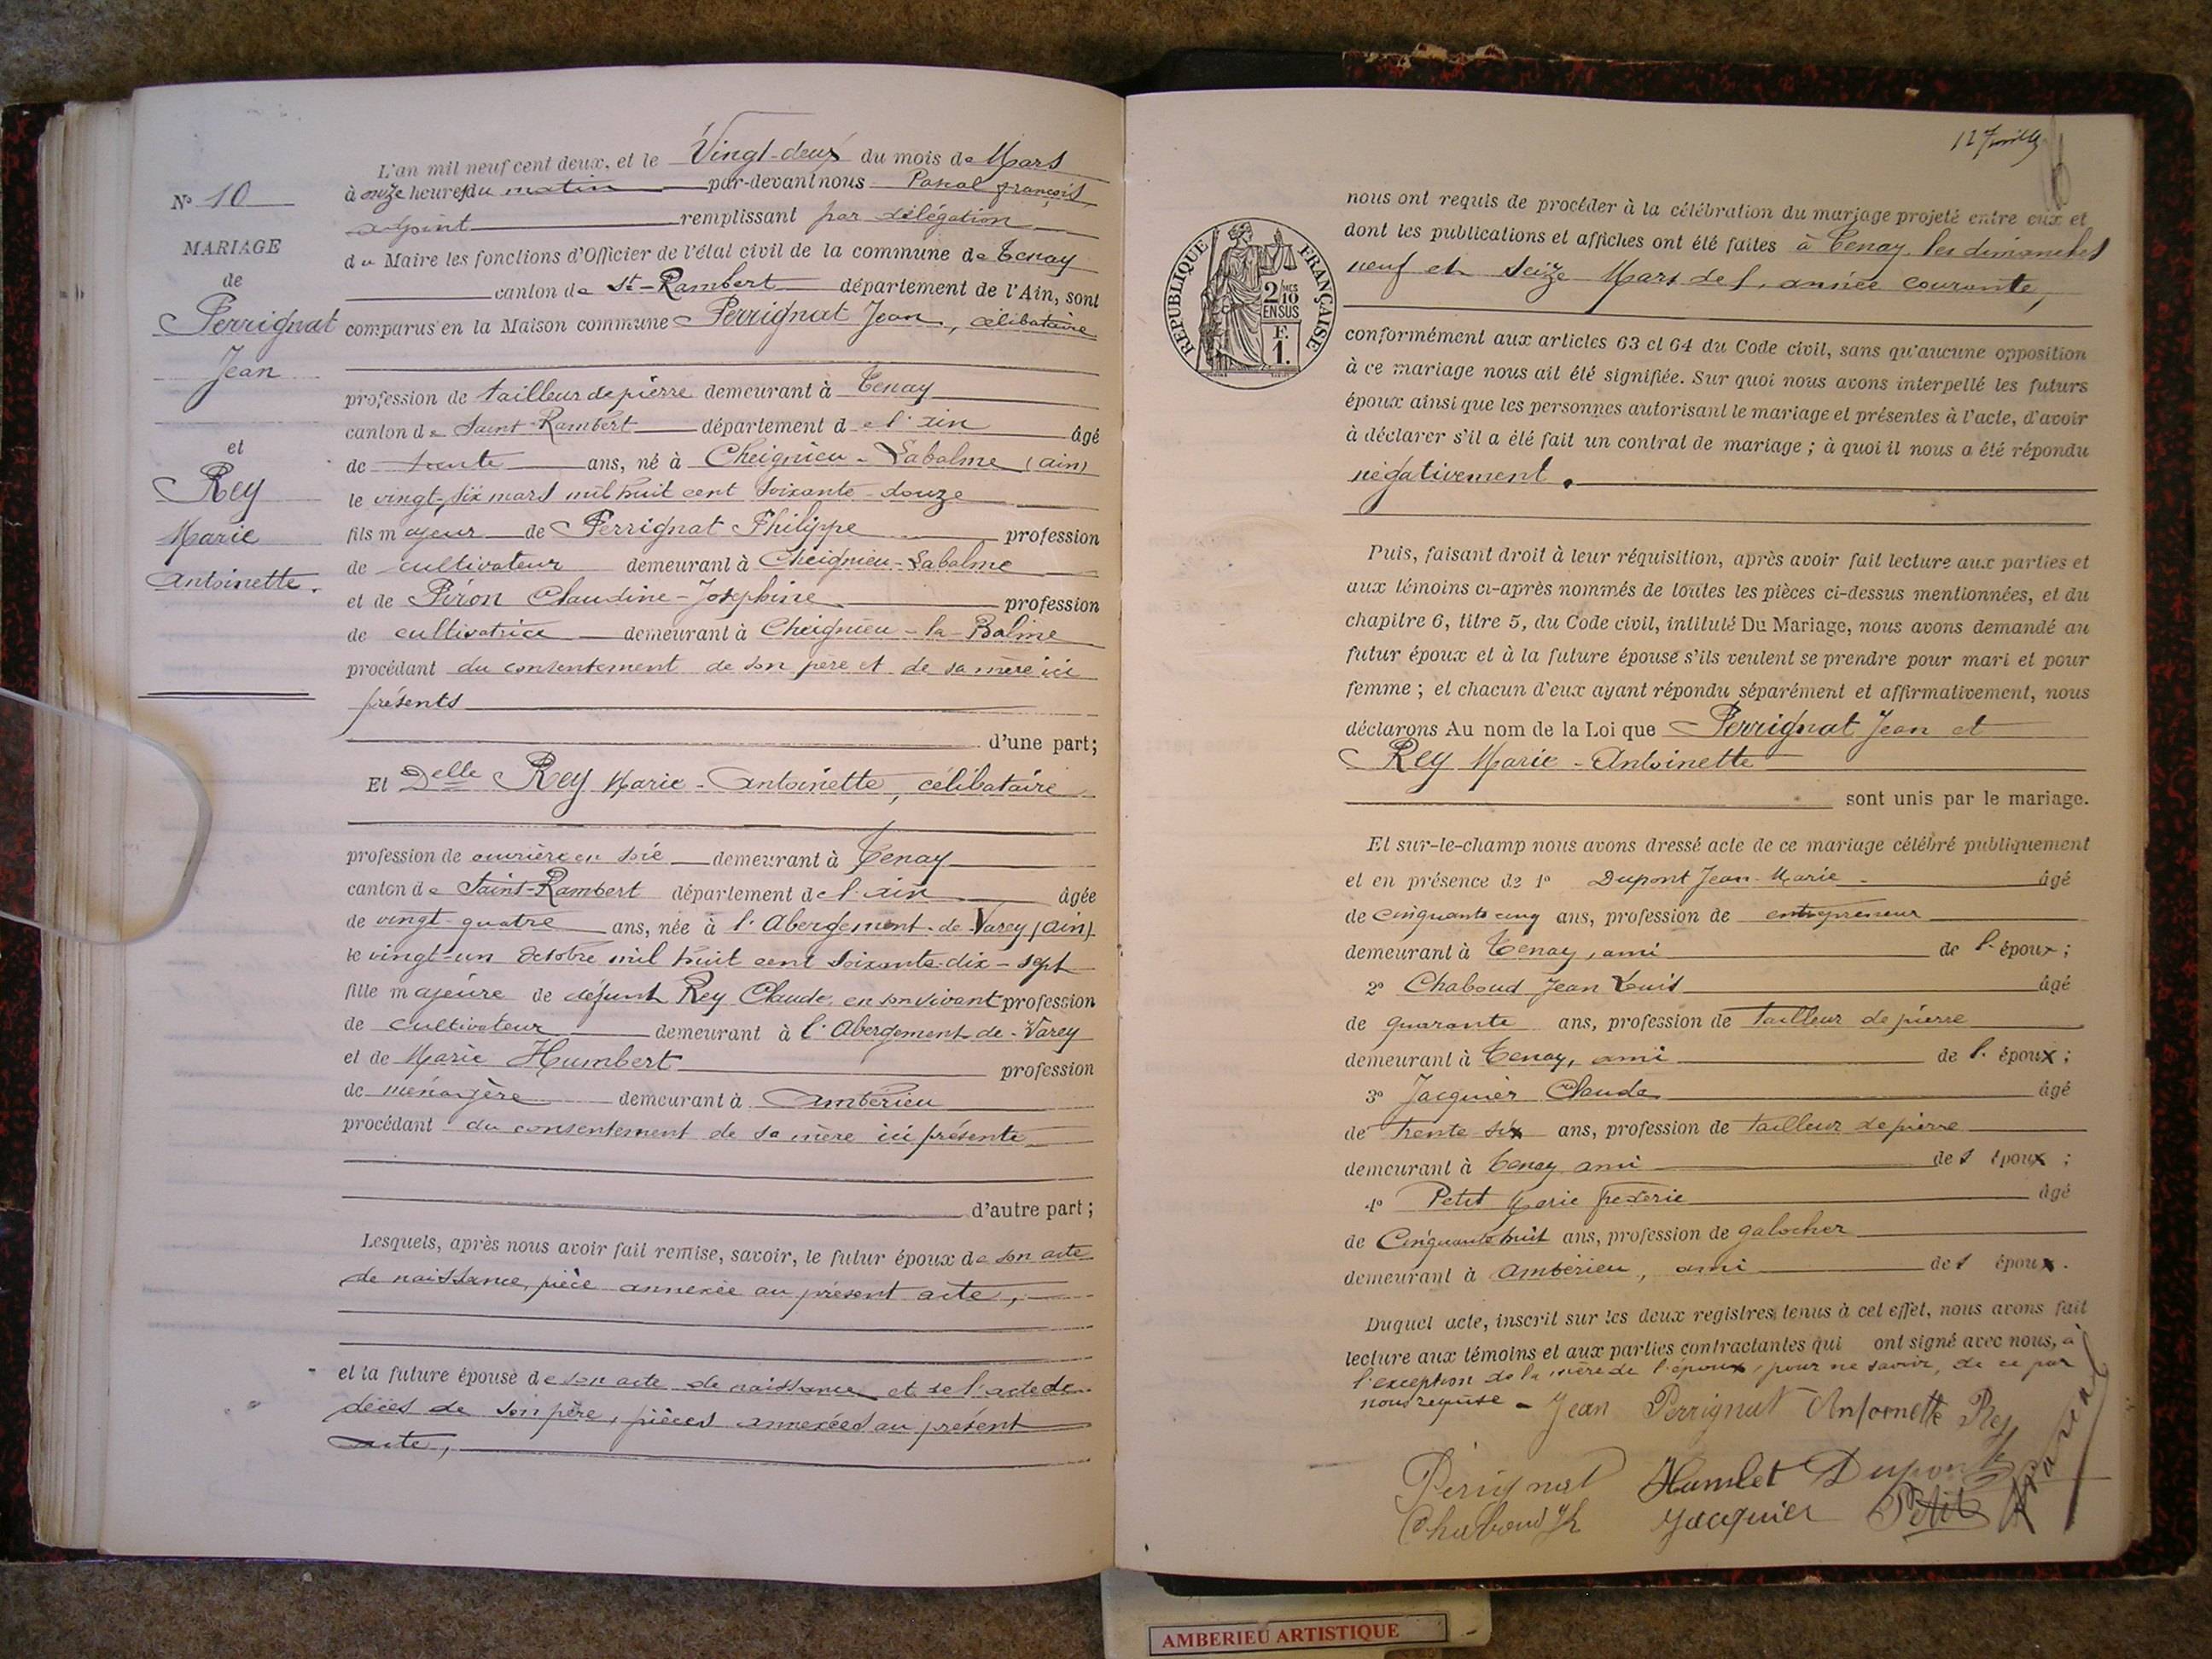 N° 10
MARIAGE
de
Perrignat
Jean
et
Rey
Marie
Antoinette.
L'an mil neuf cent deux, et le Vingt-deux du mois de Mars
à onze heures du matin par-devant nous Pascal françois
adjoint remplissant par délégation
du Maire les fonctions d'Officier de l'état civil de la commune de Tenay
canton de St-Rambert département de l'Ain, sont
comparus en la Maison commune Perrignat Jean, célibataire
profession de tailleur de pierre demeurant à Tenay
canton de Saint-Rambert département de l'ain âgé
de trente ans, né à Cheignieu-Labalme (ain)
le vingt-six mars mil huit cent soixante-douze
fils majeur de Perrignat Philippe profession
de cultivateur demeurant à Cheignieu-Labalme
et de Piron Claudine-Josephine profession
de cultivatrice demeurant à Cheignieu-la-Balme
procédant du consentement de son père et de sa mère ici
présents
d'une part;
Et Delle Rey Marie-Antoinette, célibataire
profession de ouvrière en soie demeurant à Tenay
canton de Saint-Rambert département de l'ain âgée
de vingt-quatre ans, née à l'Abergement-de-Varey (ain)
le vingt-un octobre mil huit cent soixante-dix-sept
fille majeure de défunt Rey Claude, en son vivant profession
de cultivateur demeurant à l'Abergement-de-Varey
et de Marie Humbert profession
de ménagère demeurant à Ambérieu
procédant du consentement de sa mère ici présente
d'autre part;
Lesquels, après nous avoir fait remise, savoir, le futur époux de son acte
de naissance, pièce annexée au présent acte,
et la future épouse de son acte de naissance et de l'acte de
décès de son père, pièces annexées au présent
acte,
RÉPUBLIQUE FRANÇAISE
2/10
EN SUS
F.
1.
nous ont requis de procéder à la célébration du mariage projeté entre eux et
dont les publications et affiches ont été faites à Tenay, les dimanches
neuf et seize Mars de l'année courante,
conformément aux articles 63 et 64 du Code civil, sans qu'aucune opposition
à ce mariage nous ait été signifiée. Sur quoi nous avons interpellé les futurs
époux ainsi que les personnes autorisant le mariage et présentes à l'acte, d'avoir
à déclarer s'il a été fait un contrat de mariage; à quoi il nous a été répondu
négativement.
Puis, faisant droit à leur réquisition, après avoir fait lecture aux parties et
aux témoins ci-après nommés de toutes les pièces ci-dessus mentionnées, et du
chapitre 6, titre 5, du Code civil, intitulé Du Mariage, nous avons demandé au
futur époux et à la future épouse s'ils veulent se prendre pour mari et pour
femme; et chacun d'eux ayant répondu séparément et affirmativement, nous
déclarons Au nom de la Loi que Perrignat Jean et
Rey Marie-Antoinette
sont unis par le mariage.
Et sur-le-champ nous avons dressé acte de ce mariage célébré publiquement
et en présence de 1° Dupont Jean-Marie âgé
de cinquante cinq ans, profession de entrepreneur
demeurant à Tenay, ami de l'époux;
2° Chaboud Jean Louis âgé
de quarante ans, profession de tailleur de pierre
demeurant à Tenay, ami de l'époux;
3° Jacquier Claude âgé
de trente six ans, profession de tailleur de pierre
demeurant à Tenay ami des époux;
4° Petit Marie frederic âgé
de Cinquante huit ans, profession de galocher
demeurant à Ambérieu, ami des époux.
Duquel acte, inscrit sur les deux registres tenus à cet effet, nous avons fait
lecture aux témoins et aux parties contractantes qui ont signé avec nous, à
l'exception de la mère de l'époux, pour ne savoir, de ce par
nous requise - Jean Perrignat Antoinette Rey
Perignat Humbet Dupont
Chaboud JL Jacquier Petit Pascal
AMBERIEU ARTISTIQUE